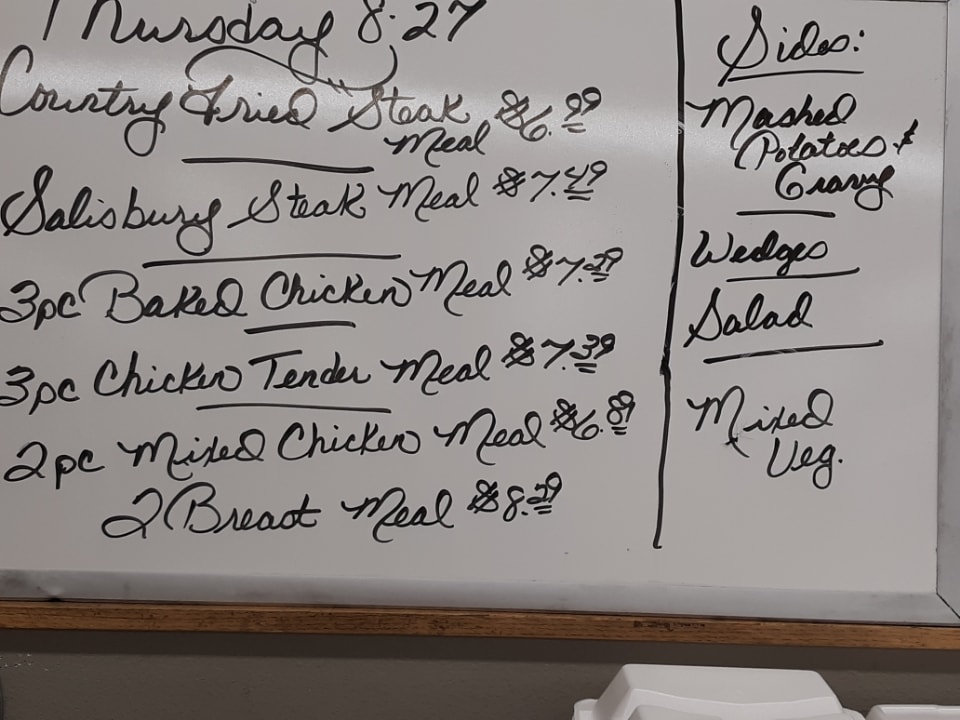 Thursday 8.27
Country Fried Steak $6.99
Meal
Salisbury Steak Meal $7.49
3pc Baked Chicken Meal $7.29
3pc Chicken Tender Meal $7.39
2pc Mixed Chicken Meal $6.89
2 Breast Meal $8.29
Sides:
Mashed
Potatoes &
Gravy
Wedges
Salad
Mixed
Veg.